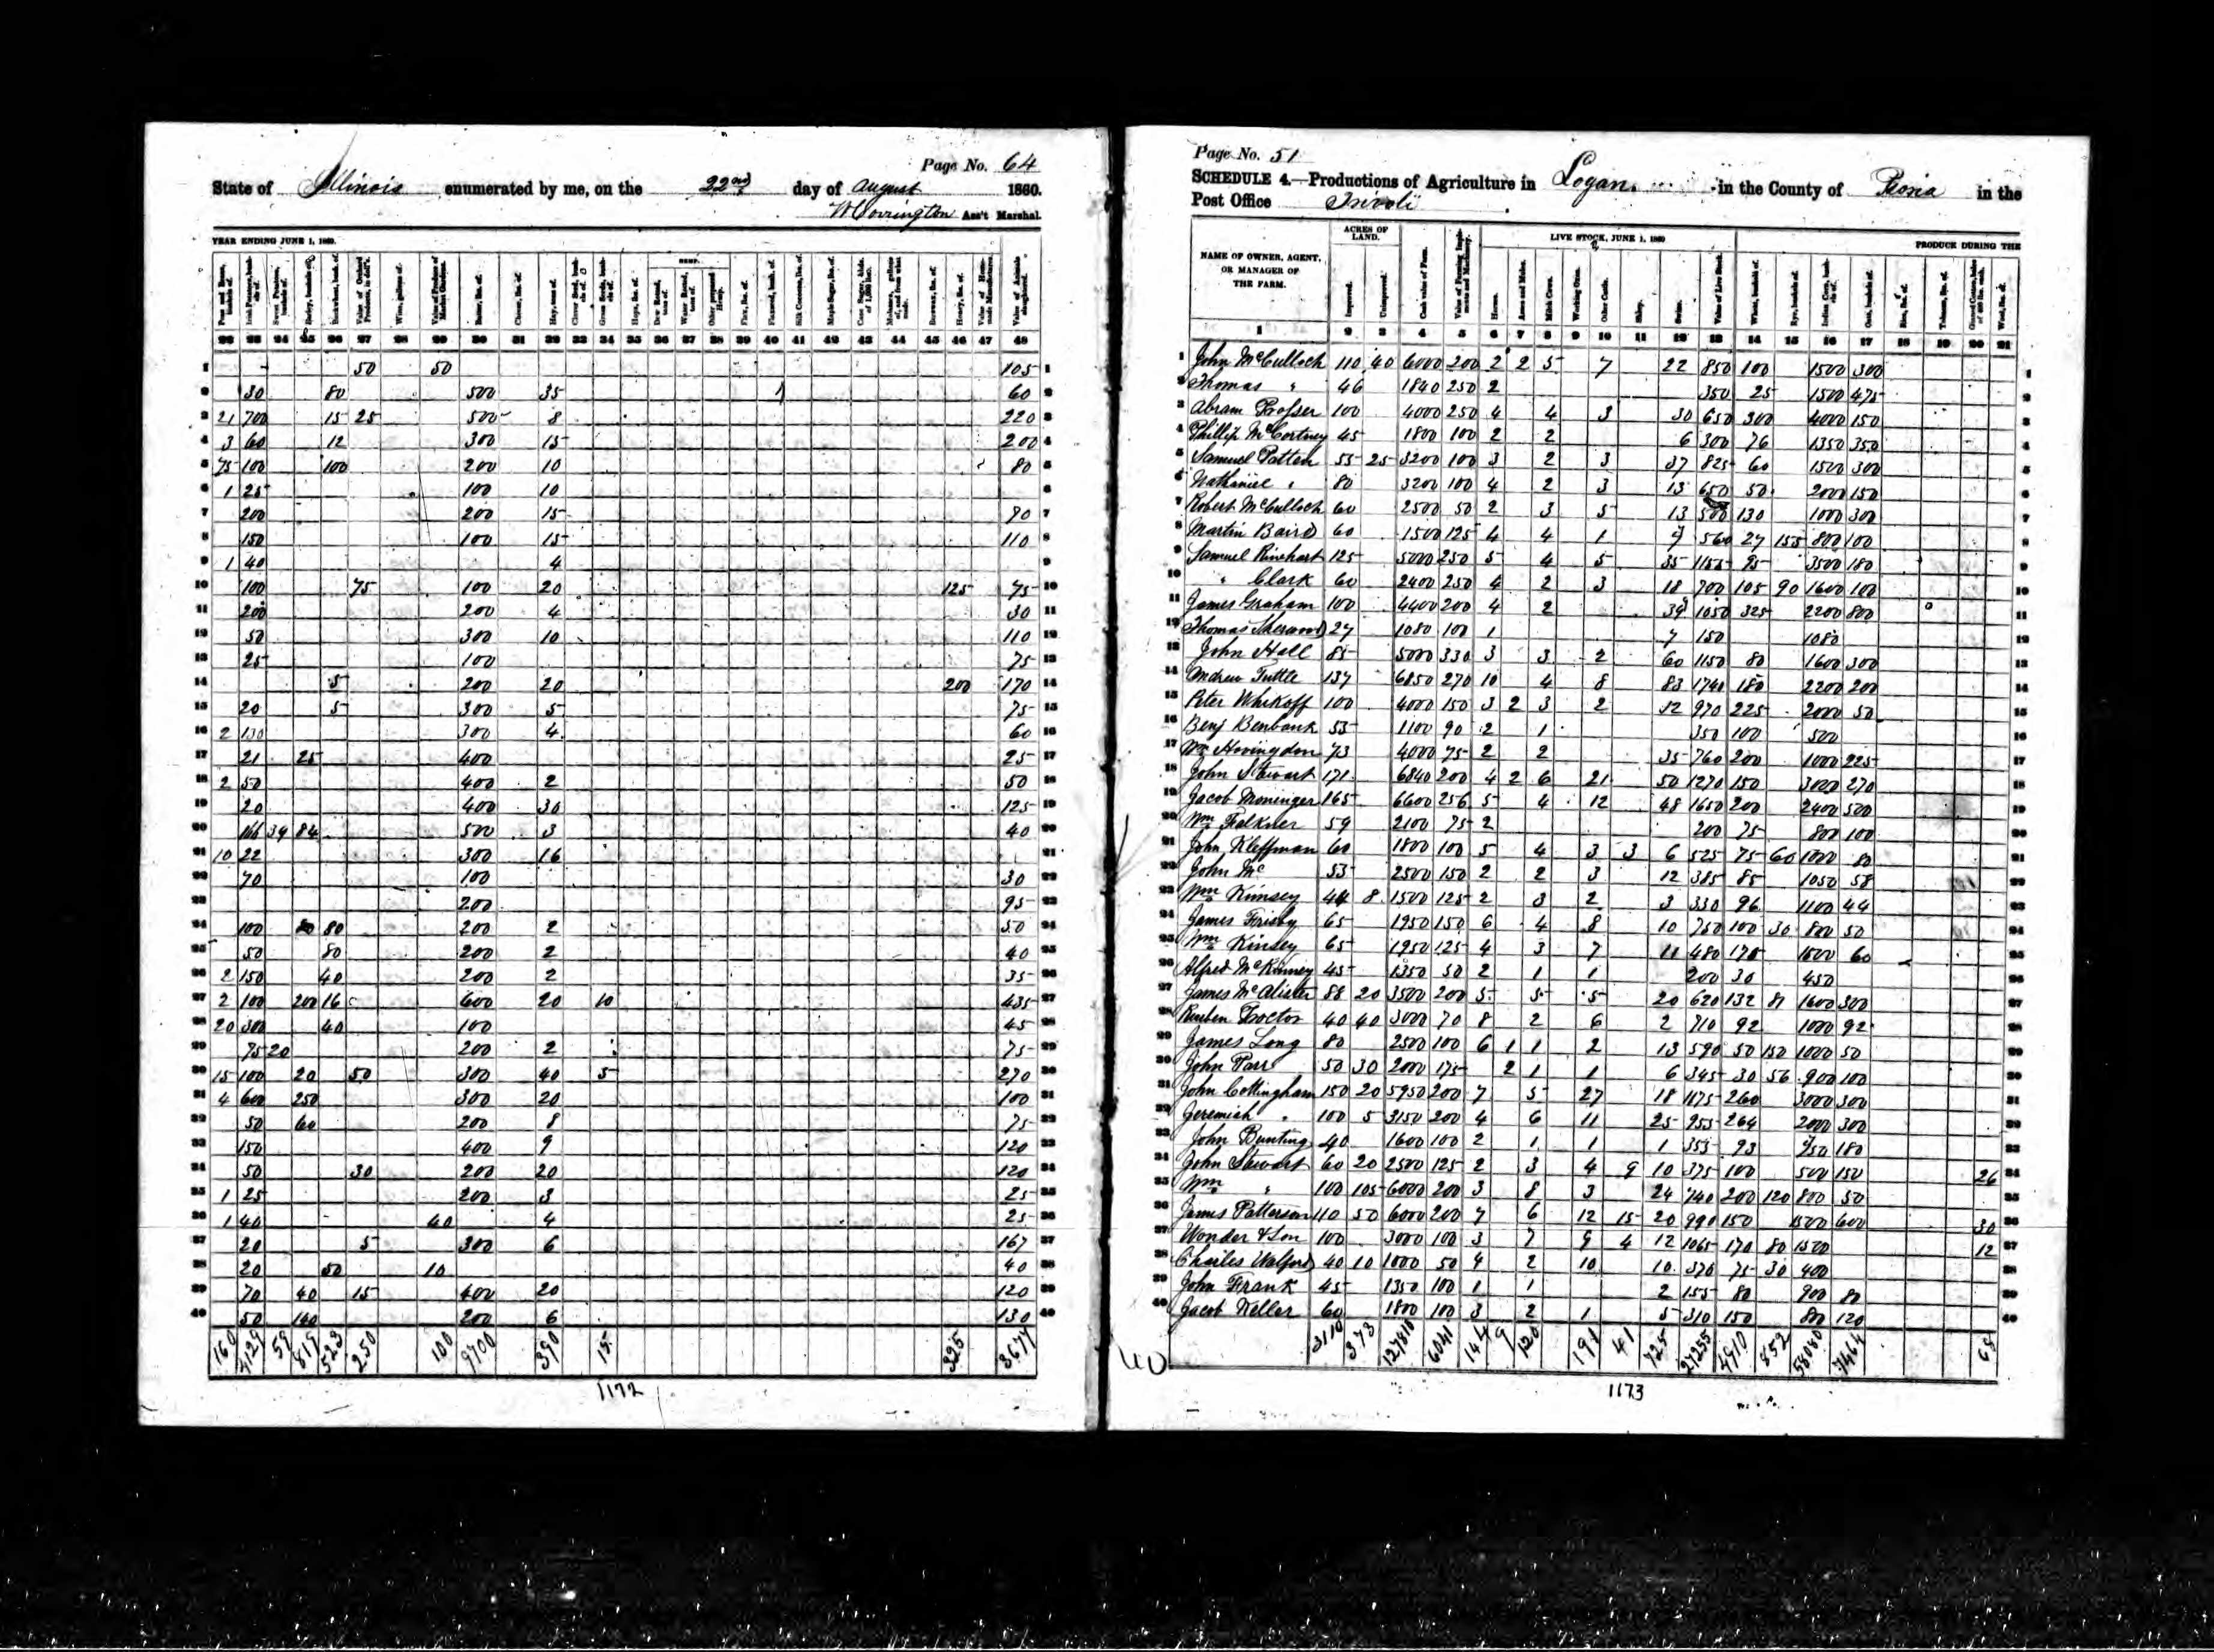 Page No. 64
State of Illinois enumerated by me, on the 22nd day of August 1860.
Ass't Marshal.
YEAR ENDING JUNE 1, 1860.
Peas and Beans, bushels of. Irish Potatoes, bushels of. Sweet Potatoes, bushels of. Barley, bushels of. Buckwheat, bush. of. Value of Orchard Products, in doll's. Wine, gallons of. Value of Produce of Market Gardens. Butter, lbs. of. Cheese, lbs. of. Hay, tons of. Clover Seed, bushels of. Grass Seeds, bushels of. Hops, lbs. of. HEMP. Dew Rotted, tons of. Water Rotted, tons of. Other prepared Hemp. Flax, lbs. of. Flaxseed, bush. of. Silk Cocoons, lbs. of. Maple Sugar, lbs. of. Cane Sugar, hhds. of 1,000 lbs. Molasses, gallons of, and from what made. Beeswax, lbs. of. Honey, lbs. of. Value of Home-made Manufactures. Value of Animals slaughtered.
22 23 24 25 26 27 28 29 30 31 32 33 34 35 36 37 38 39 40 41 42 43 44 45 46 47 48
1 50 50 105 1
2 30 80 500 35 1 60 2
3 21 700 15 25 500 8 220 3
4 3 60 12 300 15 200 4
5 75 100 100 200 10 80 5
6 1 25 100 10 6
7 200 200 15 90 7
8 150 100 15 110 8
9 1 40 4 9
10 100 75 100 20 125 75 10
11 200 200 4 30 11
12 50 300 10 110 12
13 25 100 75 13
14 5 200 20 200 170 14
15 20 5 300 5 75 15
16 2 130 300 4 60 16
17 21 25 400 25 17
18 2 50 400 2 50 18
19 20 400 30 125 19
20 166 39 84 500 3 40 20
21 10 22 300 16 21
22 70 100 30 22
23 200 95 23
24 100 80 80 200 2 50 24
25 50 80 200 2 40 25
26 2 150 40 200 2 35 26
27 2 100 200 16 600 20 10 435 27
28 20 300 40 100 45 28
29 75 20 200 2 75 29
30 15 100 20 50 300 40 5 270 30
31 4 600 250 300 20 100 31
32 50 60 200 8 75 32
33 150 400 9 120 33
34 50 30 200 20 120 34
35 1 25 200 3 25 35
36 1 40 40 4 25 36
37 20 5 300 6 167 37
38 20 50 10 40 38
39 70 40 15 400 20 120 39
40 50 140 200 6 130 40
160 4129 59 819 523 250 100 9700 390 15 325 3677
1172
Page No. 51
SCHEDULE 4.—Productions of Agriculture in Logan in the County of Peoria in the
Post Office Trivoli
NAME OF OWNER, AGENT, OR MANAGER OF THE FARM. ACRES OF LAND. Improved. Unimproved. Cash value of Farm. Value of Farming Implements and Machinery. LIVE STOCK, JUNE 1, 1860 Horses. Asses and Mules. Milch Cows. Working Oxen. Other Cattle. Sheep. Swine. Value of Live Stock. PRODUCE DURING THE Wheat, bushels of. Rye, bushels of. Indian Corn, bushels of. Oats, bushels of. Rice, lbs. of. Tobacco, lbs. of. Ginned Cotton, bales of 400 lbs. each. Wool, lbs. of.
1 2 3 4 5 6 7 8 9 10 11 12 13 14 15 16 17 18 19 20 21
1 John McCulloch 110 40 6000 200 2 2 5 7 22 850 100 1500 300 1
2 Thomas " 46 1840 250 2 350 25 1500 475 2
3 Abram Prosser 100 4000 250 4 4 3 30 650 300 4000 150 3
4 Phillip McCortney 45 1800 100 2 2 6 300 76 1350 350 4
5 Samuel Patten 55 25 3200 100 3 2 3 37 825 60 1500 300 5
6 Nathaniel " 80 3200 100 4 2 3 13 650 50 2000 150 6
7 Robert McCulloch 60 2500 50 2 3 5 13 500 130 1000 300 7
8 Martin Baird 60 1500 125 4 4 1 9 560 27 155 800 100 8
9 Samuel Rinehart 125 5000 250 5 4 5 35 1155 95 3500 180 9
10 " Clark 60 2400 250 4 2 3 18 700 105 90 1600 100 10
11 James Graham 100 4400 200 4 2 39 1050 325 2200 800 11
12 Thomas 27 1080 100 1 7 150 1080 12
13 John Hall 85 5000 330 3 3 2 60 1150 80 1600 300 13
14 Andrew Tuttle 137 6850 270 10 4 8 83 1740 180 2200 200 14
15 Peter Whikoff 100 4000 150 3 2 3 2 12 970 225 2000 50 15
16 Benj Benbank 55 1100 90 2 1 350 100 500 16
17 Wm 73 4000 75 2 2 35 760 200 1000 225 17
18 John Stewart 171 6840 200 4 2 6 21 50 1270 150 3000 270 18
19 Jacob Moninger 165 6600 256 5 4 12 48 1650 200 2400 500 19
20 Wm Falkner 59 2100 75 2 200 75 800 100 20
21 John Kleffman 60 1800 100 5 4 3 3 6 525 75 60 1000 80 21
22 John Mc 53 2500 150 2 2 3 12 385 85 1050 58 22
23 Wm Kimsey 44 8 1500 125 2 3 2 3 330 96 1100 44 23
24 James Frisby 65 1950 150 6 4 8 10 750 100 30 800 50 24
25 Wm Kinsey 65 1950 125 4 3 7 11 480 175 1500 60 25
26 Alfred McKinney 45 1350 50 2 1 1 200 30 450 26
27 James McAlister 88 20 3500 200 5 5 5 20 620 132 81 1600 300 27
28 Reuben Proctor 40 40 3000 70 8 2 6 2 710 92 1000 92 28
29 James Long 80 2500 100 6 1 1 2 13 590 50 150 1000 50 29
30 John Parr 50 30 2000 175 2 1 1 6 345 30 56 900 100 30
31 John Cottingham 150 20 5950 200 7 5 27 18 1175 260 3000 300 31
32 Jeremiah " 100 5 3150 200 4 6 11 25 955 264 2000 300 32
33 John Bunting 40 1600 100 2 1 1 1 355 93 950 180 33
34 John Stewart 60 20 2500 125 2 3 4 9 10 375 100 500 150 26 34
35 Wm " 100 105 6000 200 3 8 3 24 740 200 120 800 50 35
36 James Patterson 110 50 6000 200 7 6 12 15 20 990 150 1500 600 30 36
37 Wonder & Son 100 3000 100 3 7 9 4 12 1065 170 80 1500 12 37
38 Charles Walford 40 10 1000 50 4 2 10 10 370 75 30 400 38
39 John Frank 45 1350 100 1 1 2 155 80 900 80 39
40 Jacob Keller 60 1800 100 3 2 1 5 310 150 800 120 40
40 3110 373 127810 6041 144 9 120 191 41 725 27255 4910 852 58080 7464 68
1173